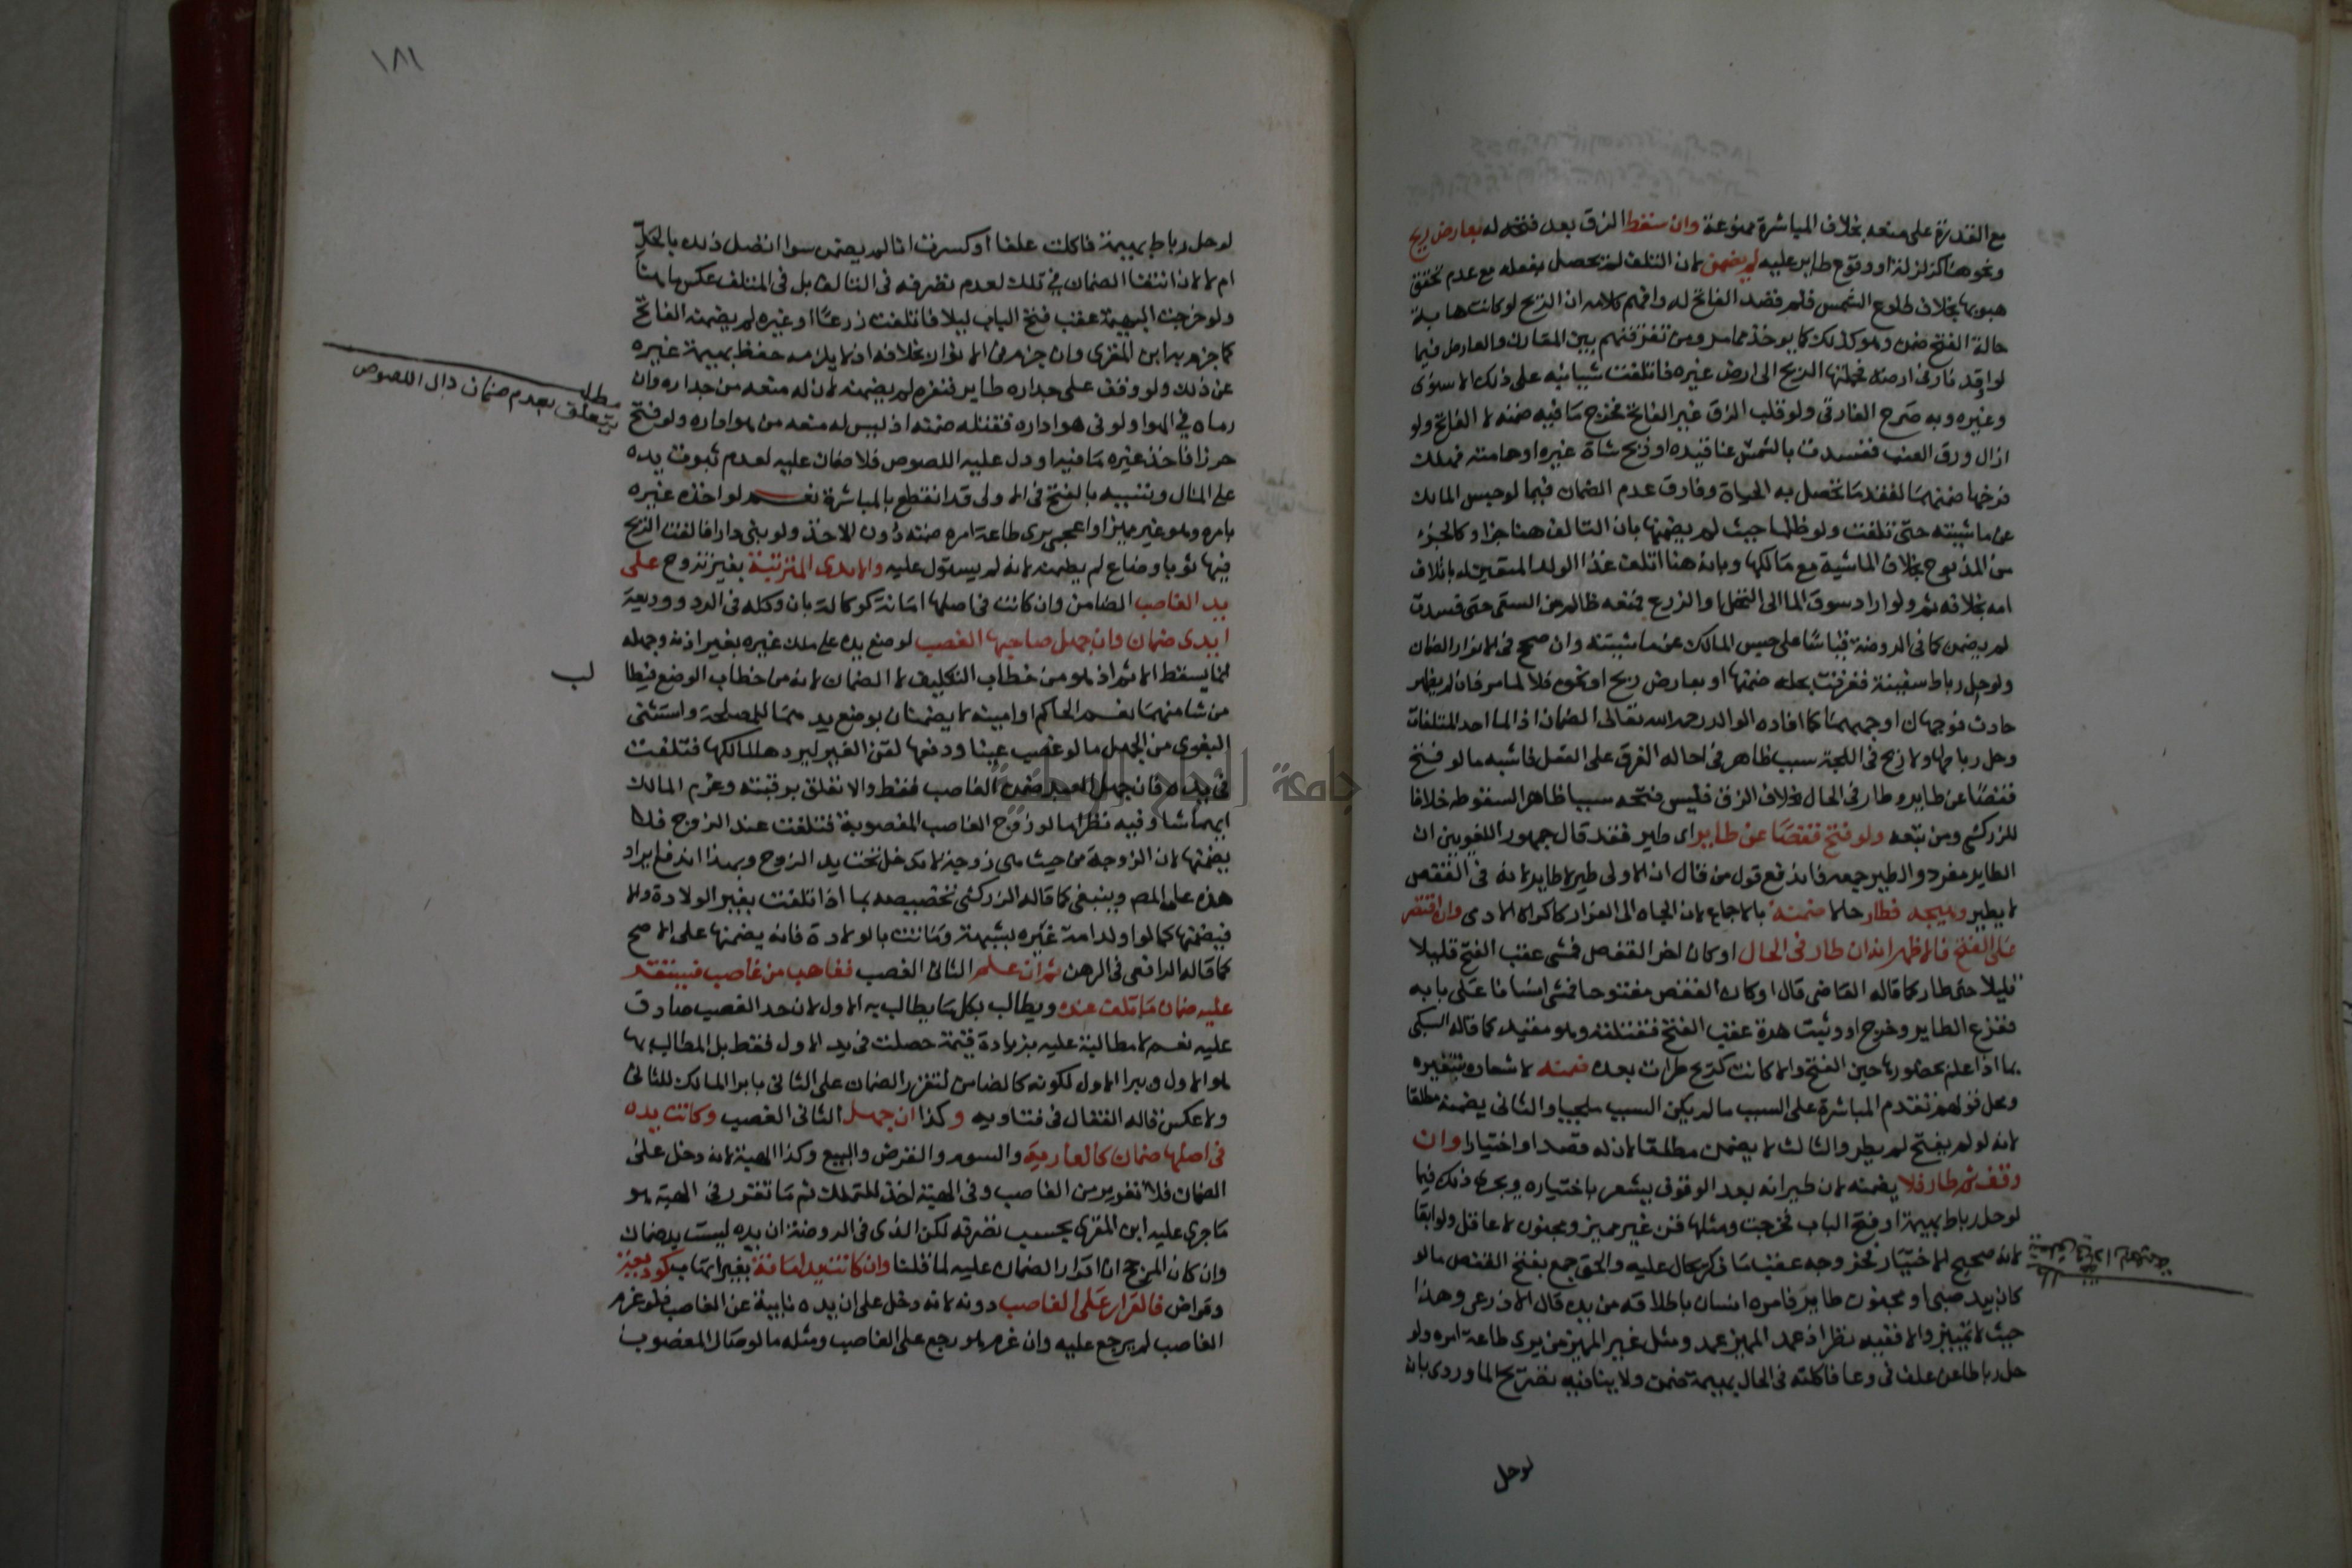 مع القدرة على منعه بخلاف المباشرة ممنوعة وان سقط الزق بعد فتحه له بعارض ريح
ونحوها كزلزلة او وقوع طاير عليه لم يضمن لان التلف لم يحصل بفعله مع عدم تحقق
هبوبها بخلاف طلوع الشمس فلم قصد الفاتح له وافهم كلامه ان الريح لو كانت هابة
حالة الفتح ضمن وهو كذلك كما يوخذ مما مر ومن تفرقتهم بين المقارن والعارض فيما
لو اوقد نارا في ارضه فحملتها الريح الى ارض غيره فاتلفت شيا نبه على ذلك الاسنوي
وغيره وبه صرح الفارقي ولو قلب الزق غير الفاتح فخرج ما فيه ضمنه لا الفاتح ولو
ازال ورق العنب ففسدت بالشمس عناقيده او ذبح شاة غيره او حامته فهلك
فرخها ضمنهما لفقد ما تحصل به الحياة وفارق عدم الضمان فيما لو حبس المالك
عن ماشيته حتى تلفت ولو ظلما حيث لم يضمنها بان التالف هنا جزا وكالجزء
من المذبوح بخلاف الماشية مع مالكها وبانه هنا اتلف غذا الولد المتعين له باتلاف
امه بخلافه ثم ولو اراد سوق الما الى النخل او الزرع فمنعه ظالم من السقي حتى فسدت
لم يضمن كما في الروضة قياسا على حبس المالك عن ماشيته وان صحح في الانوار الضمان
ولو حل رباط سفينة فغرقت بحله ضمنها او بعارض ريح او نحوه فلا لما مر فان لم يظهر
حادث فوجهان اوجههما كما افاده الوالد رحمه الله تعالى الضمان اذ الما احد المتلفات
وحل رباطها ولا ريح في اللجة سبب ظاهر في احالة الغرق على الفعل فاشبه ما لو فتح
قفصا عن طاير وطار في الحال بخلاف الزق فليس فتحه سببا ظاهرا لسقوطه خلافا
للزركشي ومن تبعه ولو فتح قفصا عن طاير اى طير فقد قال جمهور اللغويين ان
الطاير مفرد والطير جمعه فاندفع قول من قال ان الاولى طير لا طاير لانه في القفص
لا يطير وهيجه فطار حالا ضمنه بالاجماع لان الجاه الى الفرار كاكراه الادمى وان اقتصر
على الفتح فالاظهر انه ان طار في الحال او كان اخر القفص فمشى عقب الفتح قليلا
قليلا حتى طار كما قاله القاضى قال او كان القفص مفتوحا فمشى انسانا على بابه
ففزع الطاير وخرج او وثبت هرة عقب الفتح فقتلته وهو مقيد كما قاله السبكى
بما اذا علم بحضورها حين الفتح والا كانت كريح طرات بعده ضمنه لاشعاره بتنفيره
ومحل قولهم تقدم المباشرة على السبب ما لم يكن السبب ملجيا والثانى يضمنه مطلقا
لانه لو لم يفتح لم يطر والثالث لا يضمن مطلقا لان له قصدا واختيارا وان
وقف ثم طار فلا يضمنه لان طيرانه بعد الوقوف يشعر باختياره ويجرى ذلك فيما
لو حل رباط بهيمة او فتح الباب فخرجت ومثلها قن غير مميز ومجنون لا عاقل ولو ابقا
لانه صحيح الاختيار فخروجه عقب ما ذكر يحال عليه والحق جمع بفتح القفص ما لو
كان بيد صبى او مجنون طاير فامره انسان باطلاقه من يده قال الاذرعى وهذا
حيث لا تمييز والا ففيه نظر اذ عمد المميز عمد ومثل غير المميز من يرى طاعة امره ولو
حل رباطا عن علف في وعا فاكلته في الحال بهيمة ضمن ولا ينافيه تصريح الماوردى بانه
لو حل
١٨١
لو حل رباط بهيمة فاكلت علفا او كسرت انا لم يضمن سوا اتصل ذلك بالحل
ام لا لان انتفا الضمان في تلك لعدم تصرفه في التالف بل في المتلف عكس ما هنا
ولو خرجت البهيمة عقب فتح الباب ليلا فاتلفت زرعا او غيره لم يضمنه الفاتح
كما جزم به ابن المقرى وان جزم في الانوار بخلافه اذ لا يلزمه حفظ بهيمة غيره
عن ذلك ولو وقف على جداره طاير فنفره لم يضمنه لان له منعه من جداره وان
رماه في الهوا ولو في هوا داره فقتله ضمنه اذ ليس له منعه من هوا داره ولو فتح
حرزا فاخذ غيره ما فيه او دل عليه اللصوص فلا ضمان عليه لعدم ثبوت يده
على المال وتسببه بالفتح في الاولى قد انقطع بالمباشرة نعم لو اخذه غيره
بامره وهو غير مميز او اعجمى يرى طاعة امره ضمنه دون الاخذ ولو بنى دارا فالقت الريح
فيها ثوبا وضاع لم يضمنه لانه لم يستول عليه والايدى المترتبة بغير تزوج على
يد الغاصب الضامن وان كانت في اصلها امانة كوكالة بان وكله في الرد ووديعة
ايدى ضمان وان جهل صاحبها الغصب لوضع يده على ملك غيره بغير اذنه وجهله
انما يسقط الاثم اذ هو من خطاب التكليف لا الضمان لانه من خطاب الوضع فيطالب
من شا منهما نعم الحاكم او امينه لا يضمنان بوضع يدهما للمصلحة واستثنى
البغوى من الجهل ما لو غصب عينا ودفعها لقن الغير ليردها لمالكها فتلفت
في يده فان جهل العبد ضمن الغاصب فقط والا تعلق برقبته وغرم المالك
ايهما شا وفيه نظر اما لو زوج الغاصب المغصوبة فتلفت عند الزوج فلا
يضمنها لان الزوجة من حيث هى زوجة لا تدخل تحت يد الزوج وبهذا اندفع ايراد
هذه على المص وينبغى كما قاله الزركشى تخصيصه بما اذا تلفت بغير الولادة والا
فيضمنها كما لو اولد امة غيره بشبهة وماتت بالولادة فانه يضمنها على الاصح
كما قاله الرافعى في الرهن ثم ان علم الثانى الغصب فغاصب من غاصب فيستقر
عليه ضمان ما تلف عنده ويطالب بكل ما يطالب به الاول لان حد الغصب صادق
عليه نعم لا مطالبة عليه بزيادة قيمة حصلت في يد الاول فقط بل المطالب بها
هو الاول ويبرا الاول لكونه كالضامن لتقرر الضمان على الثانى بابرا المالك للثانى
ولا عكس قاله القفال في فتاويه وكذا ان جهل الثانى الغصب وكانت يده
في اصلها ضمان كالعارية والسوم والقرض والبيع وكذا الهبة لانه دخل على
الضمان فلا تغرير من الغاصب وفى الهبة اخذ للتملك ثم ما تقرر في الهبة هو
ما جرى عليه ابن المقرى بحسب تصرفه لكن الذى في الروضة ان يده ليست يد ضمان
وان كان المرجح انا قرار الضمان عليه لما قلنا وان كانت يد امانة بغير اتهاب كوديعة
وقراض فالقرار على الغاصب دونه لانه دخل على ان يده نايبة عن الغاصب فلو غرم
الغاصب لم يرجع عليه وان غرم هو رجع على الغاصب ومثله ما لو صال المغصوب
مطلب
يتعلق بعدم ضمان دال اللصوص